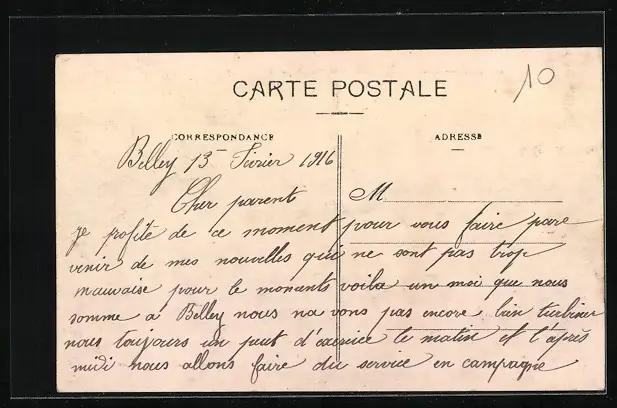 10
CARTE POSTALE
CORRESPONDANCE
ADRESSE
Belley 13 Fevrier 1916
Cher parent
M
je profite de ce moment pour vous faire pare
venir de mes nouvelles qui ne sont pas trop
mauvaise pour le moments voila un moi que nous
somme a Belley nous na vons pas encore bien turbiner
nous toujours un peut d'exercice le matin et l'après
midi nous allons faire du service en campagne